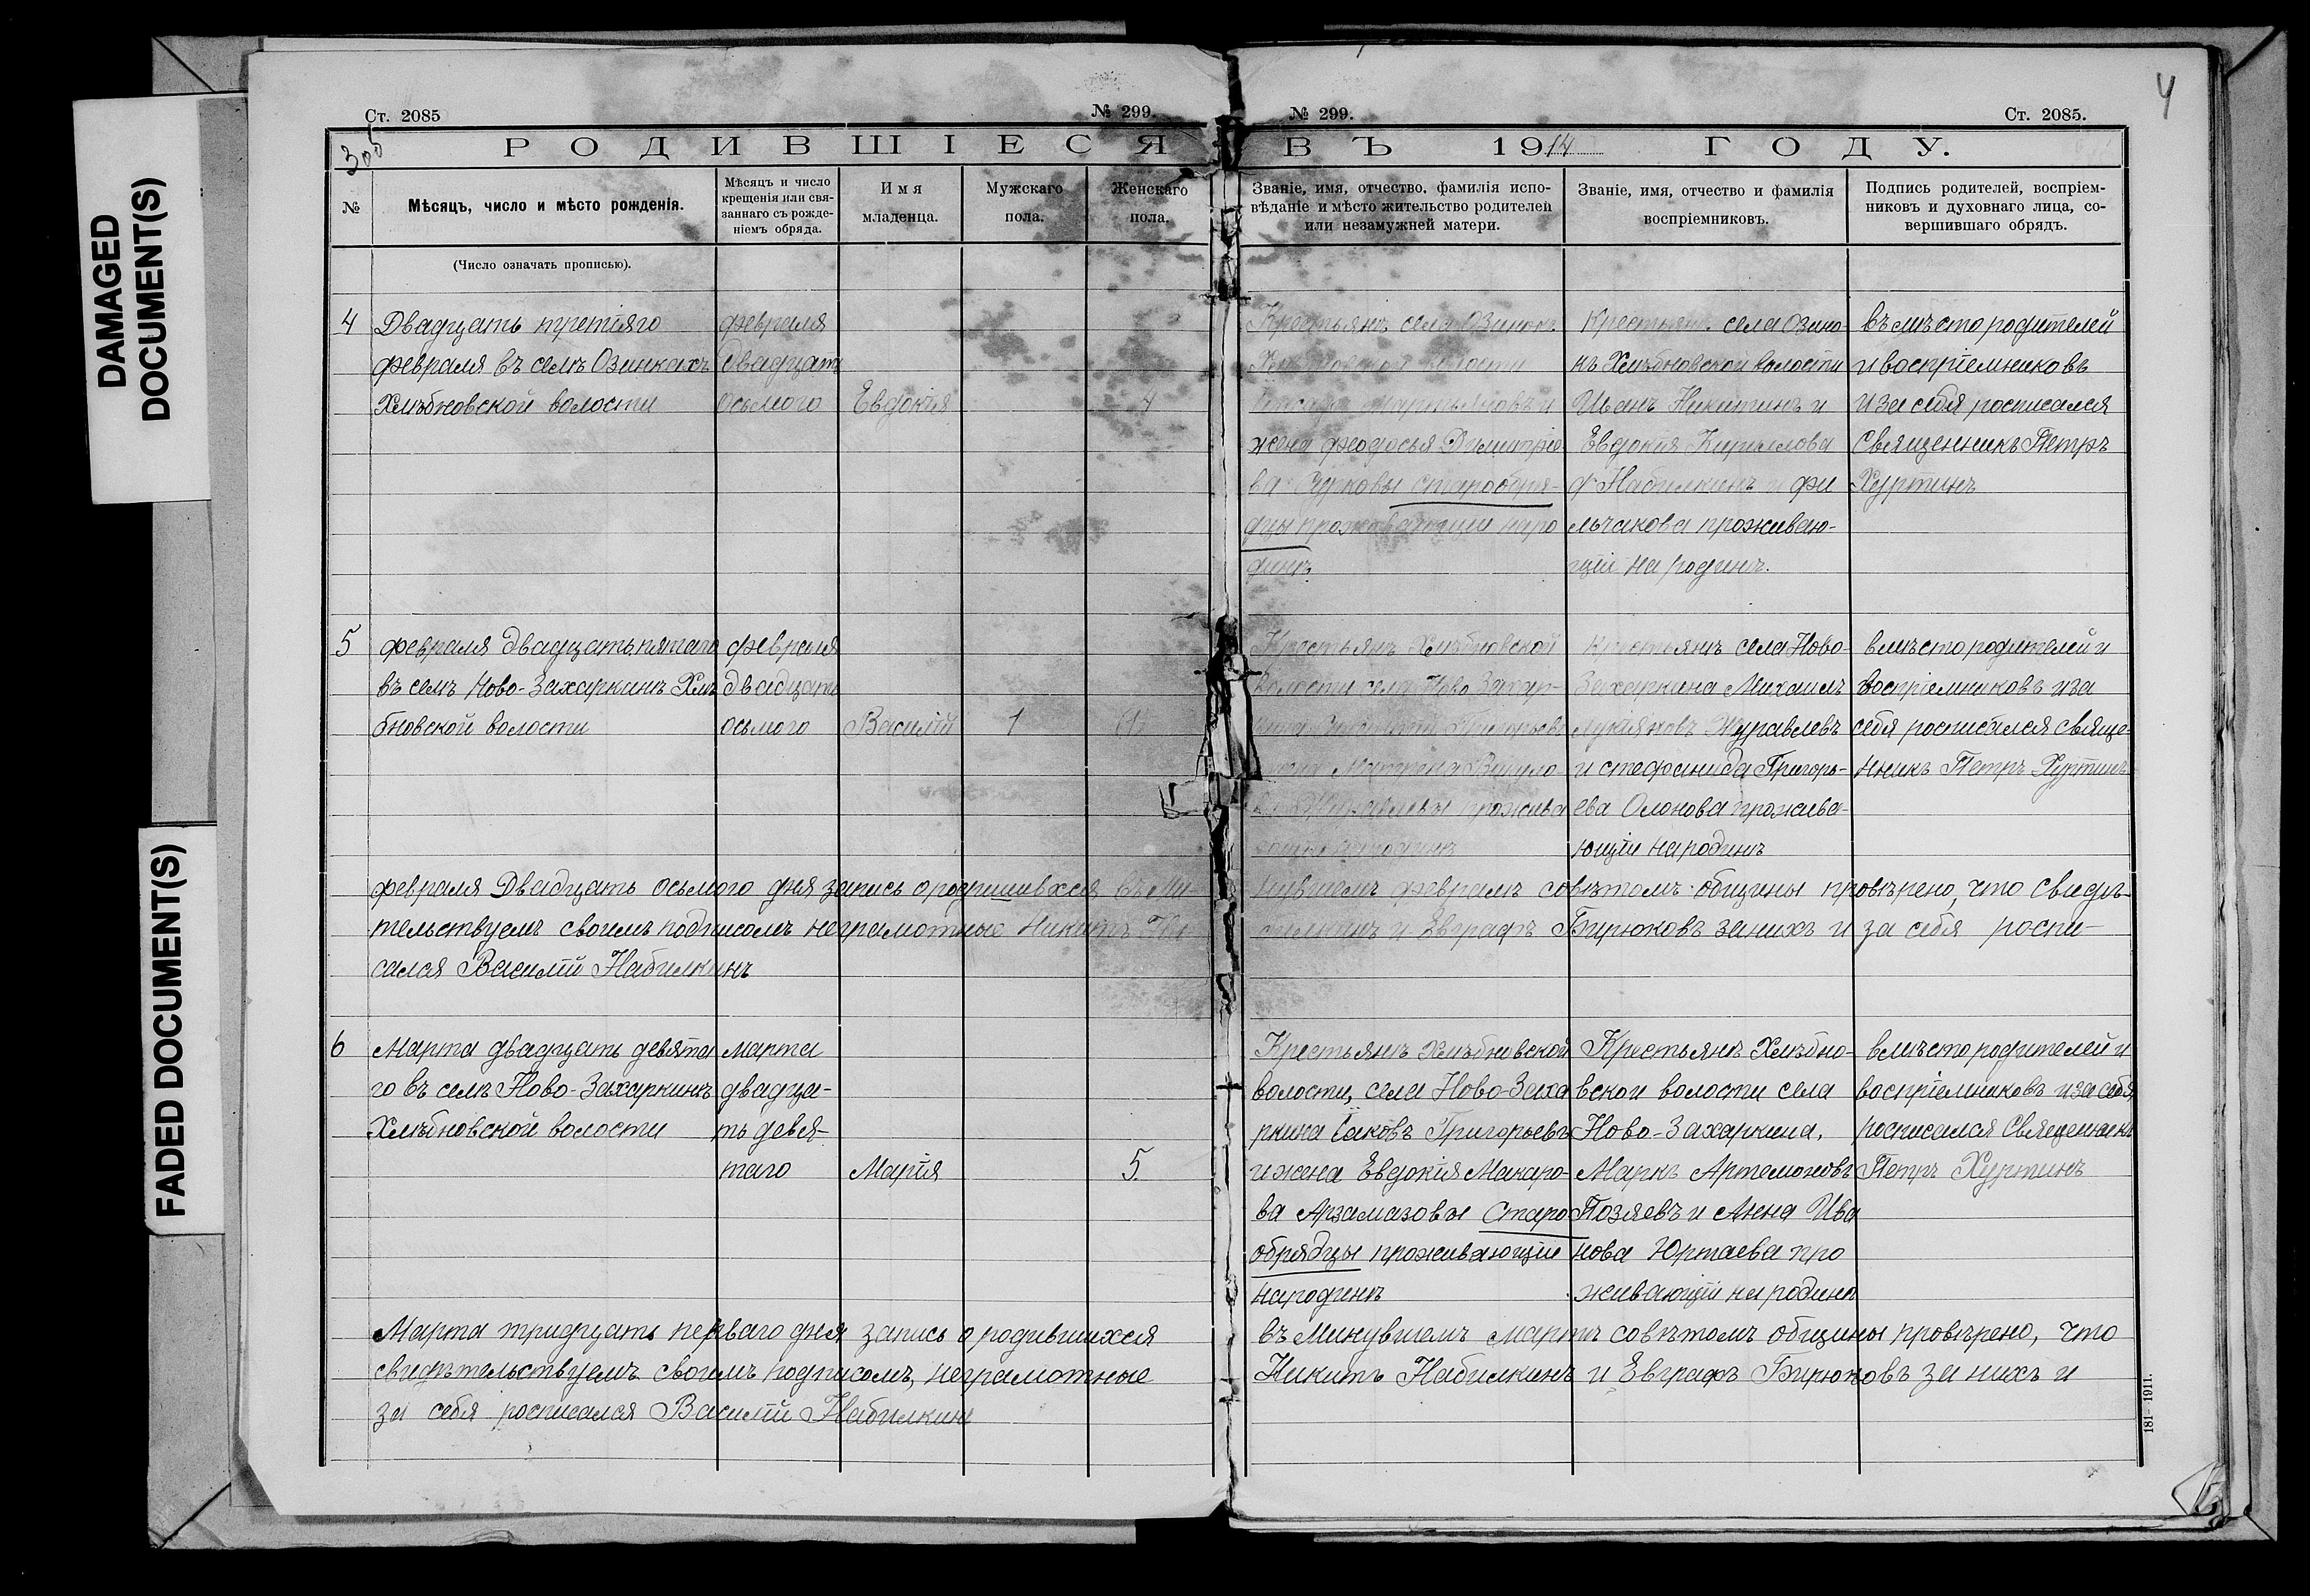 DAMAGED
DOCUMENT(S)
FADED DOCUMENT(S)
4
Ст. 2085
№ 299.
№ 299.
Ст. 2085.
305
РОДИВШІЕСЯ ВЪ 1914 ГОДУ.
№
Мѣсяцъ, число и мѣсто рожденія.
Мѣсяцъ и число
крещенія или свя-
заннаго съ рожде-
ніемъ обряда.
Имя
младенца.
Мужскаго
пола.
Женскаго
пола.
Званіе, имя, отчество, фамилія испо-
вѣданіе и мѣсто жительство родителей
или незамужней матери.
Званіе, имя, отчество и фамилія
воспріемниковъ.
Подпись родителей, воспріем-
никовъ и духовнаго лица, со-
вершившаго обрядъ.
(Число означать прописью).
4
Двадцать третіяго
февраля въ селѣ Озинкахъ
Хлѣбновской волости
февраля
двадцать
осьмого
Евдокія
4
Крестьянъ села Озинокъ
волости
жена феодосья Димитріе
ва Сурковы старообря-
дцы проживающіи наро
динѣ
Крестьян. села Озино-
къ Хлѣбновской волости
Иванъ Никитинъ и
Евдокія Кирилова
Набилкинъ и фи
льчакова проживаю-
щіи на родинѣ.
въ мѣсто родителей
и воспріемниковъ
и за себя росписался
Священникъ Петръ
Хуртинъ
5
февраля двадцать пятаго
въ селѣ Ново-Захаркинѣ Хлѣ
бновской волости
февраля
двадцать
осьмого
Василій
1
Крестьянъ Хлѣбновской
волости села Ново Захар-
Григорьевъ
жена Матрена Викуло
Журавлевы прожива
ющіи на родинѣ
крестьянъ села Ново-
Захаркина Михаилъ
Лукіяновъ Журавлевъ
и стефанида Григорь-
ева Олонова прожива-
ющіи на родинѣ
вмѣсто родителей и
воспріемниковъ и за
себя росписался Свяще-
нникъ Петръ Хуртинъ
февраля Двадцать осьмого дня запись о родившихся въ Ми-
нувшемъ февралѣ совѣтомъ общины провѣрено, что свидѣ-
тельствуемъ своимъ подписомъ неграмотные Никитъ На
билкинъ и Евграфъ Бирюковъ за нихъ и за себя роспи-
сался Василій Набилкинъ
6
Марта двадцать девята
го въ селѣ Ново-Захаркинѣ
Хлѣбновской волости
марта
двадца-
ть девя-
таго
Марія
5.
Крестьянъ Хлѣбновской
волости, села Ново-Заха
ркина Іаковъ Григорьевъ
и жена Евдокія Макаро-
ва Арзамазовы Старо
обрядцы проживающіи
народинѣ
Крестьянъ Хлѣбно-
вской волости села
Ново-Захаркина,
Маркъ Артемоновъ
Позяевъ и Анна Ива
нова Юртаева про
живающіи на родинѣ
вмѣсто родителей и
воспріемниковъ и за себя
росписался Священникъ
Петръ Хуртинъ
Марта тридцать перваго дня запись о родившихся
въ Минувшемъ мартѣ совѣтомъ общины провѣрено, что
свидѣтельствуемъ своимъ подписомъ, неграмотные
Никитъ Набилкинъ и Евграфъ Бирюковъ за нихъ и
за себя росписался Василій Набилкинъ
181-1911.